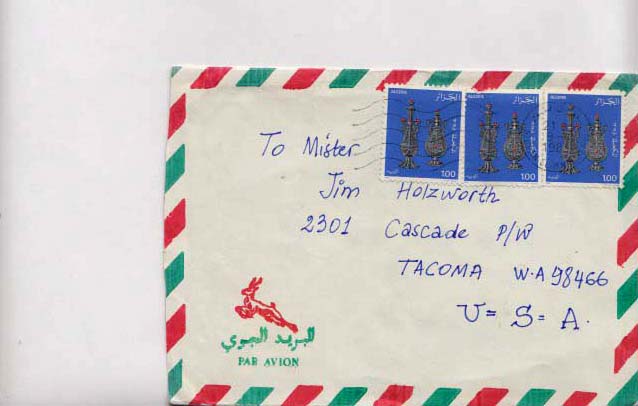 ALGERIE الجزائر
1.00
ALGERIE الجزائر
1.00
ALGERIE الجزائر
1.00
To Mister
Jim Holzworth
2301 Cascade P/W
TACOMA W.A 98466
U= S= A.
البريد الجوي
PAR AVION